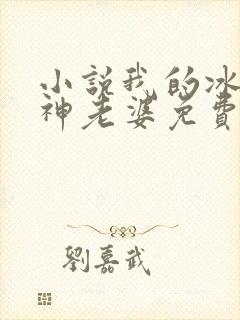 小說我的冰
神老婆免費
劉嘉武